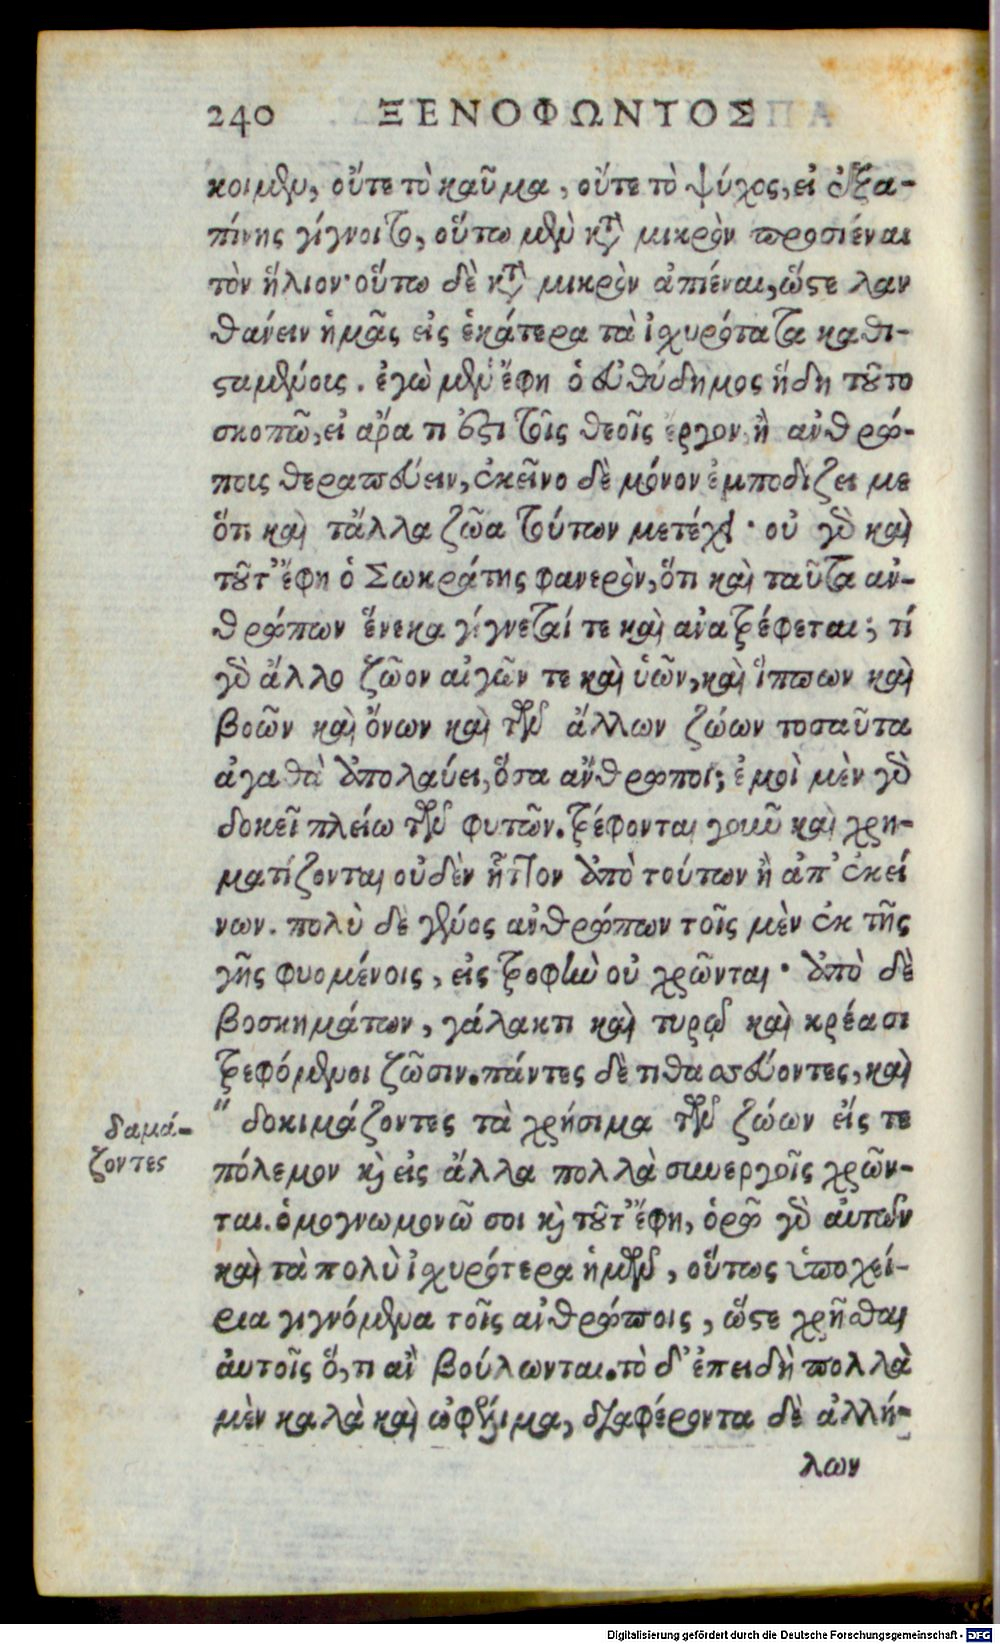 240 ΞΕΝΟΦΩΝΤΟΣ
κοιμεν, οὔτε τὸ καῦμα, οὔτε τὸ ψύχος, εἰ ἐξα-
πίνης γίγνοιτο, οὕτω μὲν κτ μικρὸν προσιέναι
τὸν ἥλιον· οὕτω δὲ κτ μικρὸν ἀπιέναι, ὥστε λαν
θάνειν ἡμᾶς εἰς ἑκάτερα τὰ ἰσχυρότατα καθι-
σταμένοις. ἐγὼ μὲν ἔφη ὁ εὐθύδημος ἤδη τοῦτο
σκοπῶ, εἰ ἄρα τι ἐστι τοῖς θεοῖς ἔργον, ἢ ἀνθρώ-
ποις θεραπεύειν, ἐκεῖνο δὲ μόνον ἐμποδίζει με
ὅτι καὶ τἄλλα ζῶα τούτων μετέχει· οὐ γὰρ καὶ
τοῦτ' ἔφη ὁ Σωκράτης φανερὸν, ὅτι καὶ ταῦτα ἀν-
θρώπων ἕνεκα γίγνεταί τε καὶ ἀνατρέφεται; τί
γὰρ ἄλλο ζῶον αἰγῶν τε καὶ ὑῶν, καὶ ἵππων καὶ
βοῶν καὶ ὄνων καὶ τῶν ἄλλων ζώων τοσαῦτα
ἀγαθὰ ἀπολαύει, ὅσα ἄνθρωποι; ἐμοὶ μὲν γὰρ
δοκεῖ πλείω τῶν φυτῶν. τρέφονται γοῦν καὶ χρη-
ματίζονται οὐδὲν ἧττον ἀπὸ τούτων ἢ ἀπ' ἐκεί
νων. πολὺ δὲ γένος ἀνθρώπων τοῖς μὲν ἐκ τῆς
γῆς φυομένοις, εἰς τροφὴν οὐ χρῶνται· ἀπὸ δὲ
βοσκημάτων, γάλακτι καὶ τυρῷ καὶ κρέασι
τρεφόμενοι ζῶσιν. πάντες δὲ τιθασσεύοντες, καὶ
" δοκιμάζοντες τὰ χρήσιμα τῶν ζώων εἴς τε
δαμά-
ζοντες
πόλεμον κὶ εἰς ἄλλα πολλὰ συνεργοῖς χρῶν-
ται. ὁμογνωμονῶ σοι κὶ τοῦτ' ἔφη, ὁρῶ γὰρ αὐτῶν
καὶ τὰ πολὺ ἰσχυρότερα ἡμῶν, οὕτως ὑποχεί-
ρια γιγνόμενα τοῖς ἀνθρώποις, ὥστε χρῆσθαι
αὐτοῖς ὅ,τι ἂν βούλωνται. τὸ δ' ἐπειδὴ πολλὰ
μὲν καλὰ καὶ ὠφέλιμα, διαφέροντα δὲ ἀλλή-
λων
Digitalisierung gefördert durch die Deutsche Forschungsgemeinschaft - DFG